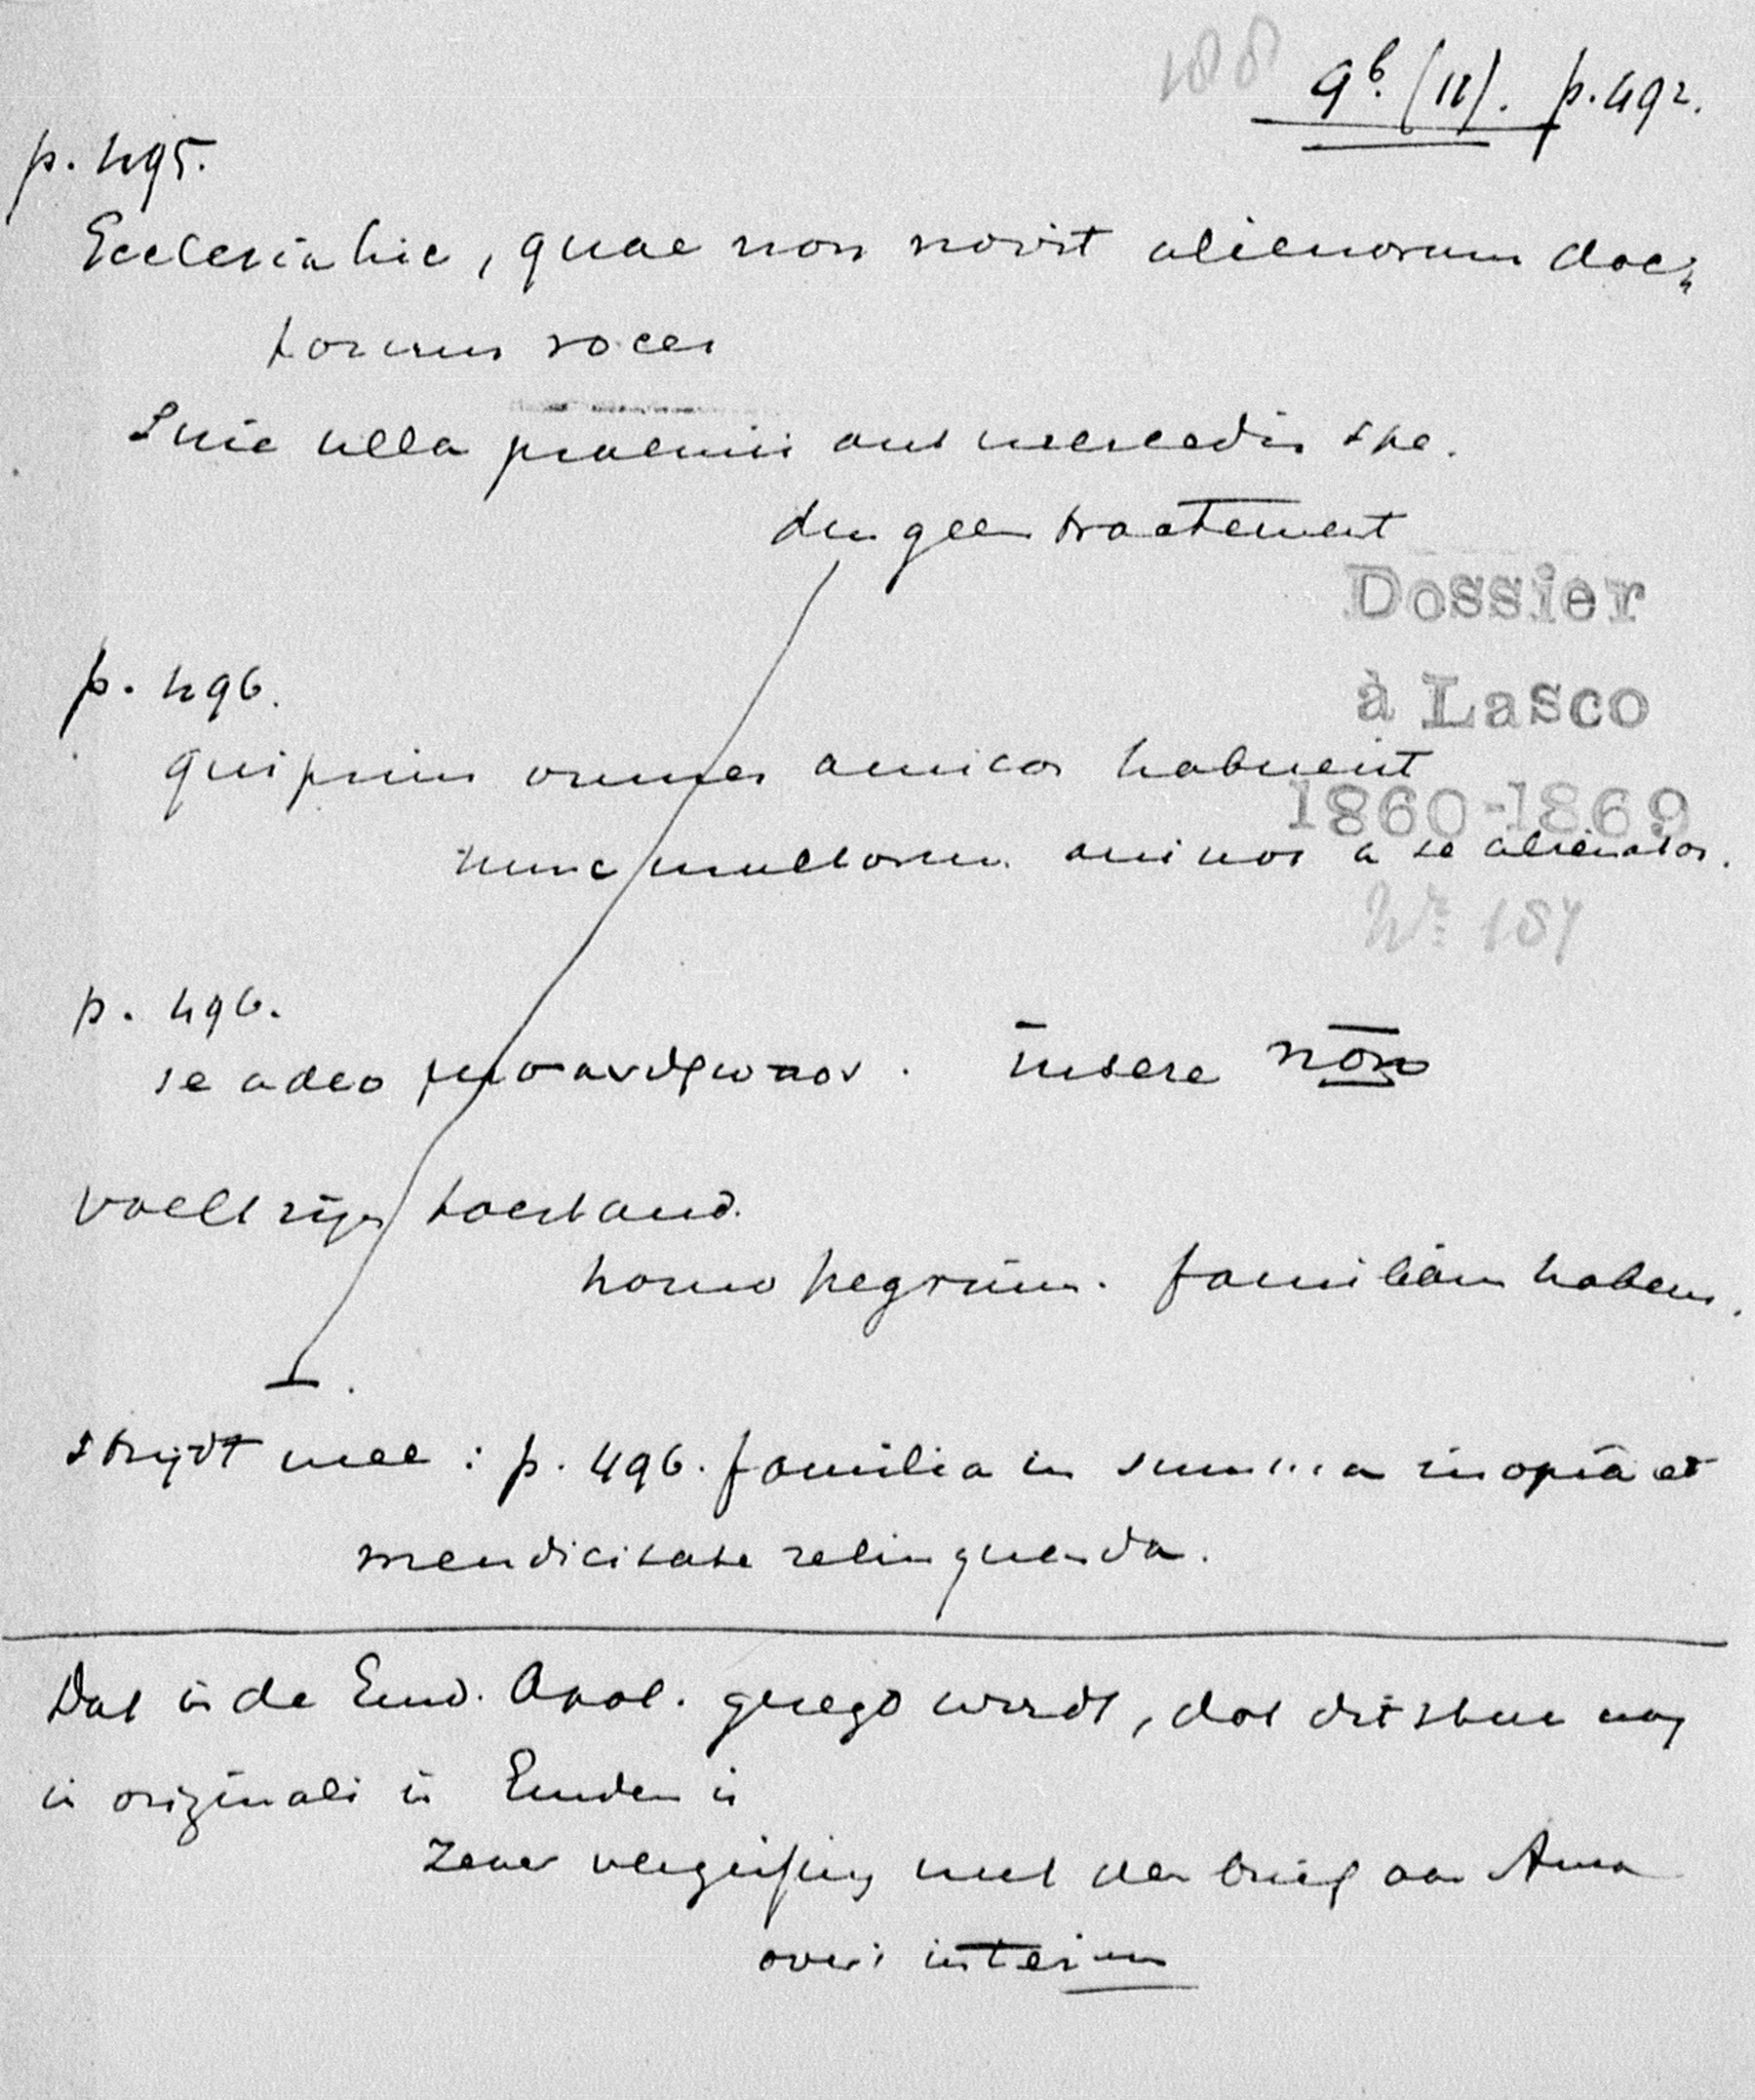 188
9b. (11). p. 492.
p. 495.
Ecclesia hic, quae non novit alienorum doc-
torum voces
Sine ulla praemii aut mercedis spe.
dus geen tractement
Dossier
à Lasco
p. 496.
qui prius omnes amicos habuerit
1860-1869
nunc multorum animos a se alienatos.
Nr 187
p. 496.
se adeo μισανθρωπον. insere non
voelt zijn toestand.
homo peregrinus. familiam habens.
strijdt mee : p. 496. familia in summa inopia et
mendicitate relinquenda.
Dat in de Emd. Apol. gezegd wordt, dat dit stuk nog
in originali in Emden is
zeker vergissing met den brief aan Anna
over 't interim